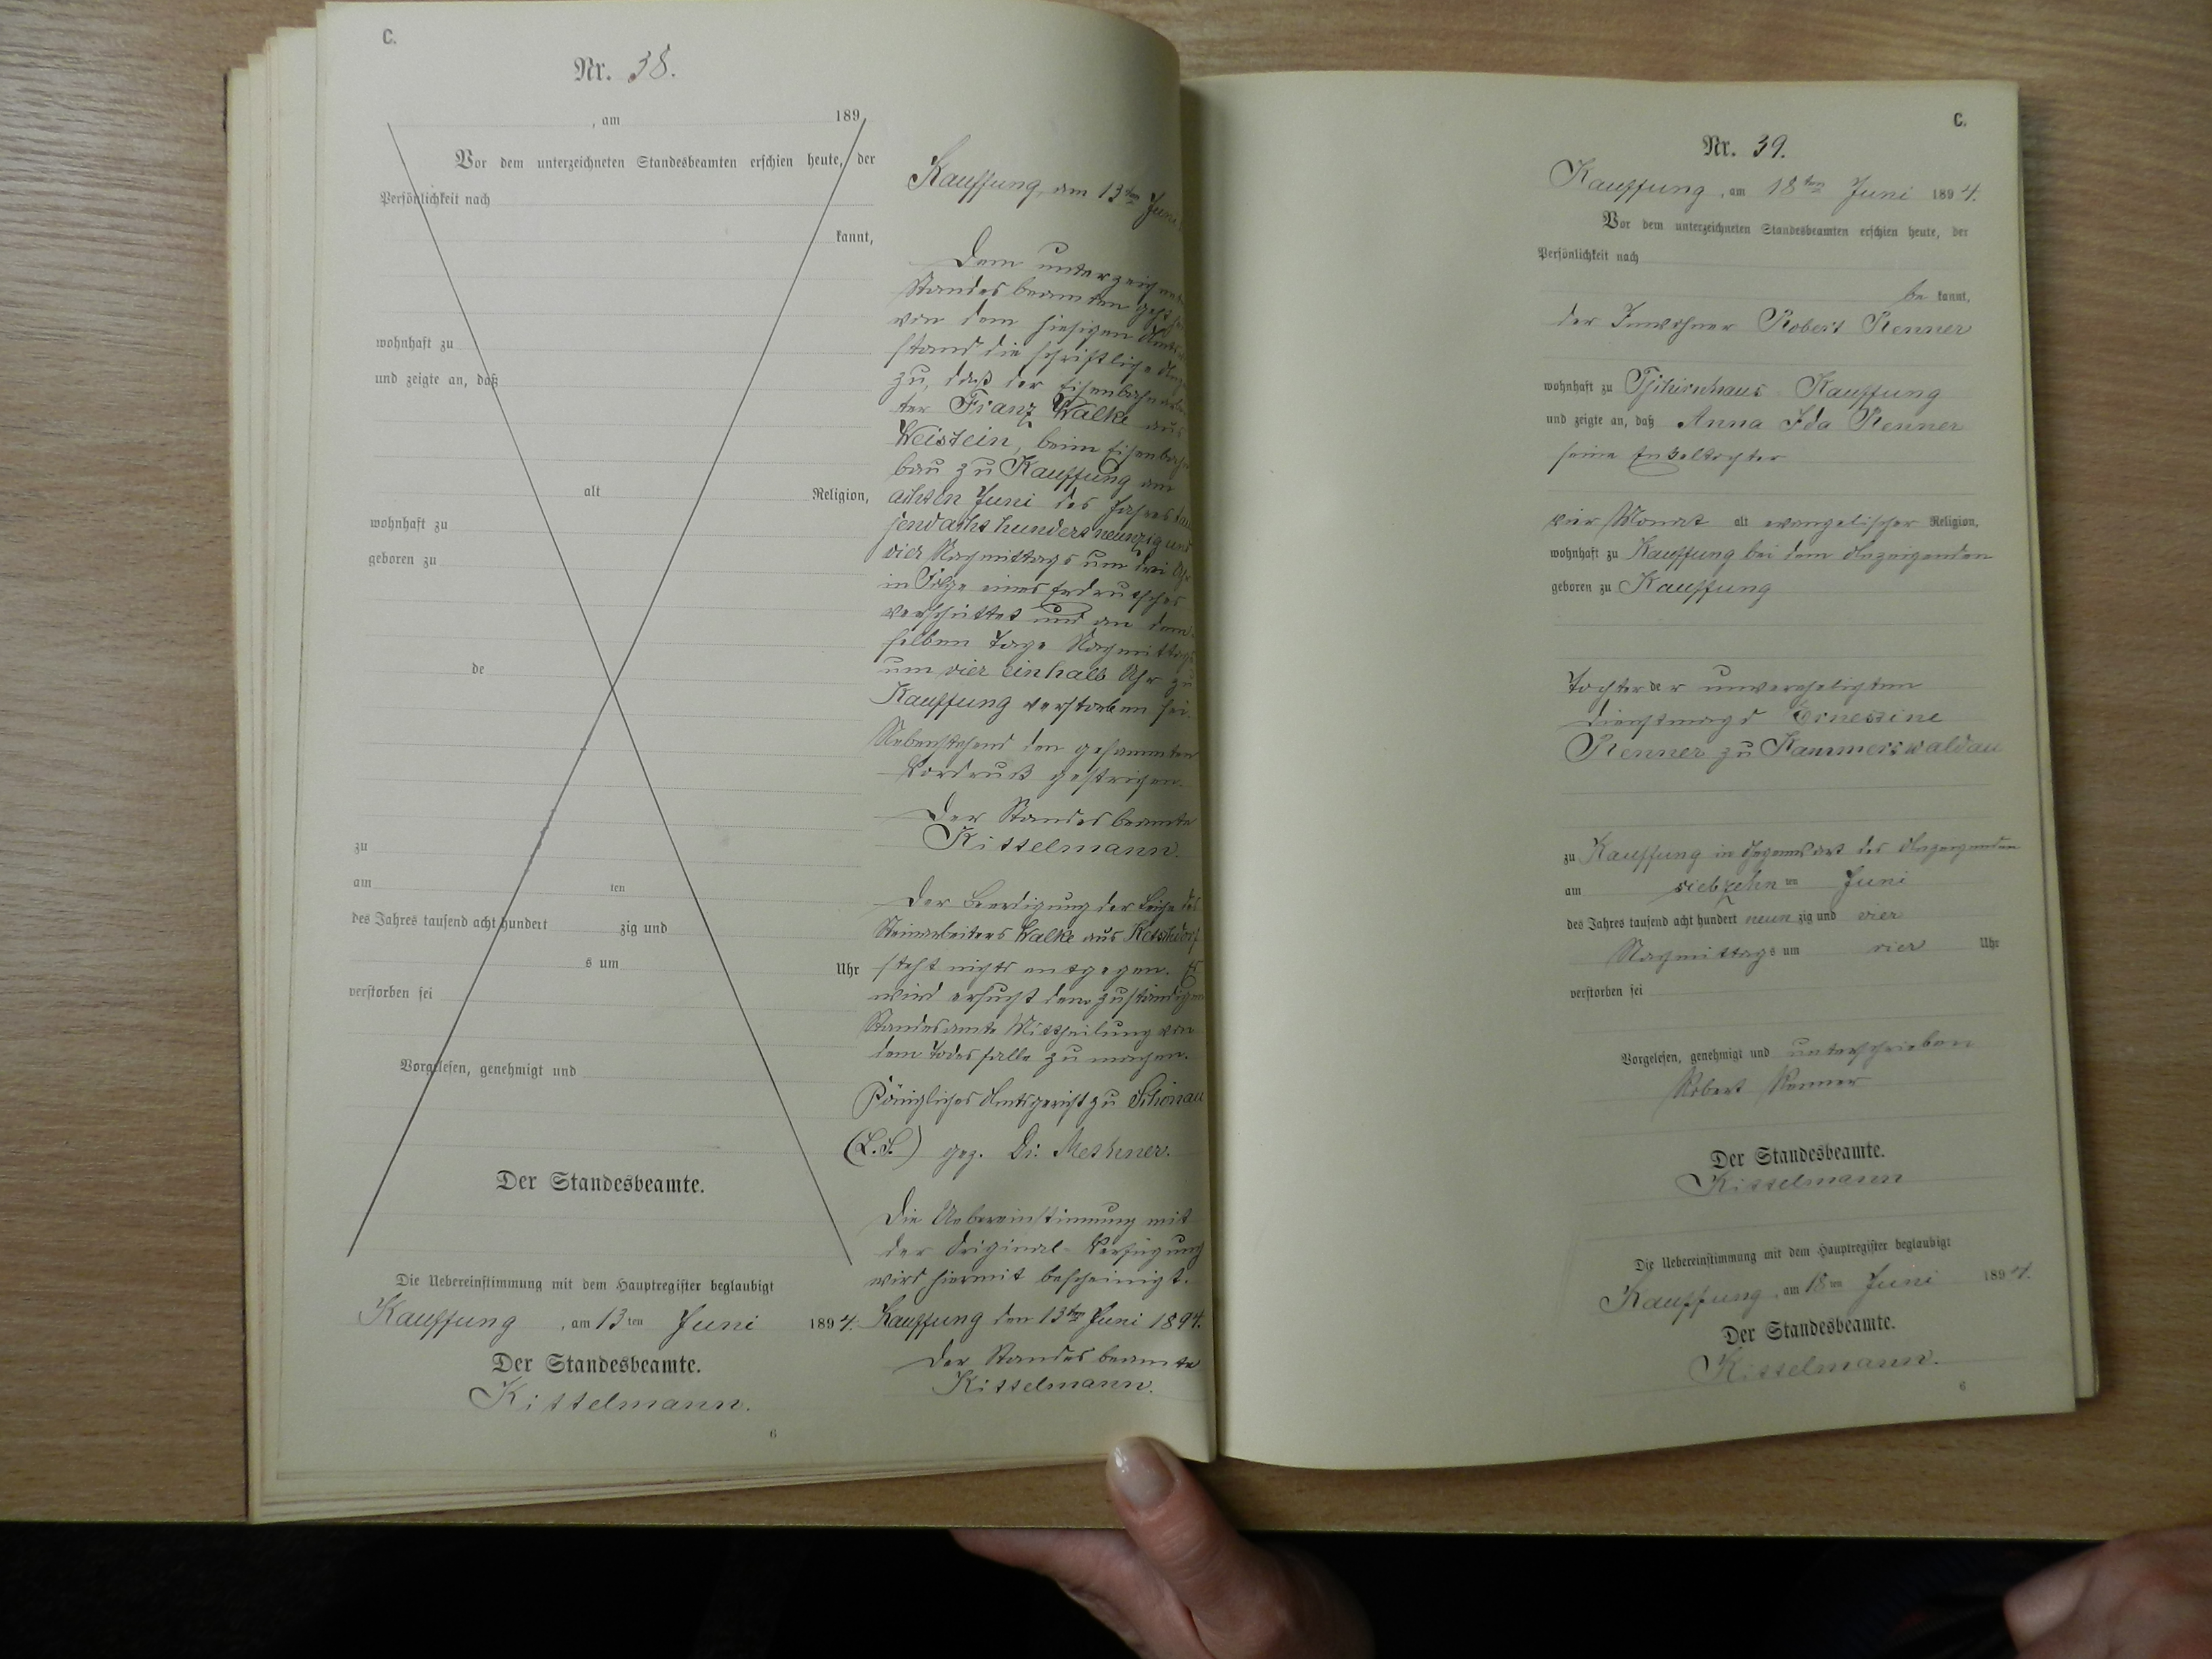 C.
Nr. 38.
, am 189
Vor dem unterzeichneten Standesbeamten erschien heute, der
Persönlichkeit nach
kannt,
wohnhaft zu
und zeigte an, daß
alt Religion,
wohnhaft zu
geboren zu
de
zu
am ten
des Jahres tausend acht hundert zig und
s um Uhr
verstorben sei
Vorgelesen, genehmigt und
Der Standesbeamte.
Die Uebereinstimmung mit dem Hauptregister beglaubigt
Kauffung, am 13ten Juni 1894.
Der Standesbeamte.
Kittelmann.
6
Kauffung, am 13ten Juni
Dem unterzeichneten
Standesbeamten geht
von dem hiesigen
stand die schriftliche
zu, daß der Eisenbahnarbei
ter Franz Walke aus
Weistein, beim Eisenbahn
bau zu Kauffung am
achten Juni des Jahres tau
sendachthundertneunzig und
vier Nachmittags um drei Uhr
in Folge eines Erdrutsches
verschüttet und an dem
selben Tage Nachmittags
um vier einhalb Uhr zu
Kauffung verstorben sei.
Nebenstehend den gesammten
Vordruck gestrichen.
Der Standesbeamte
Kittelmann.
Der Beerdigung der Leiche des
Steinarbeiters Walke aus Ketschdorf
steht nichts entgegen. Es
wird ersucht dem zuständigen
Standesamte Mittheilung von
dem Todesfalle zu machen.
Königliches Amtsgericht zu Schönau
(L.S.) gez. Dr. Methner.
Die Uebereinstimmung mit
der Original-Verfügung
wird hiermit bescheinigt.
Kauffung den 13ten Juni 1894.
Der Standesbeamte
Kittelmann.
C.
Nr. 39.
Kauffung, am 18ten Juni 1894.
Vor dem unterzeichneten Standesbeamten erschien heute, der
Persönlichkeit nach
be kannt,
der Inwohner Robert Renner
wohnhaft zu Tschirnhaus-Kauffung
und zeigte an, daß Anna Ida Renner
seine Enkeltochter
vier Monat alt evangelischer Religion,
wohnhaft zu Kauffung bei dem Anzeigenden
geboren zu Kauffung
Tochter der unverehelichten
Dienstmagd Ernestine
Renner zu Kammerswaldau
zu Kauffung in Gegenwart des Anzeigenden
am siebzehn ten Juni
des Jahres tausend acht hundert neun zig und vier
Nachmittags um vier Uhr
verstorben sei
Vorgelesen, genehmigt und unterschrieben
Robert Renner
Der Standesbeamte.
Kittelmann
Die Uebereinstimmung mit dem Hauptregister beglaubigt
Kauffung, am 18ten Juni 1894.
Der Standesbeamte.
Kittelmann.
6